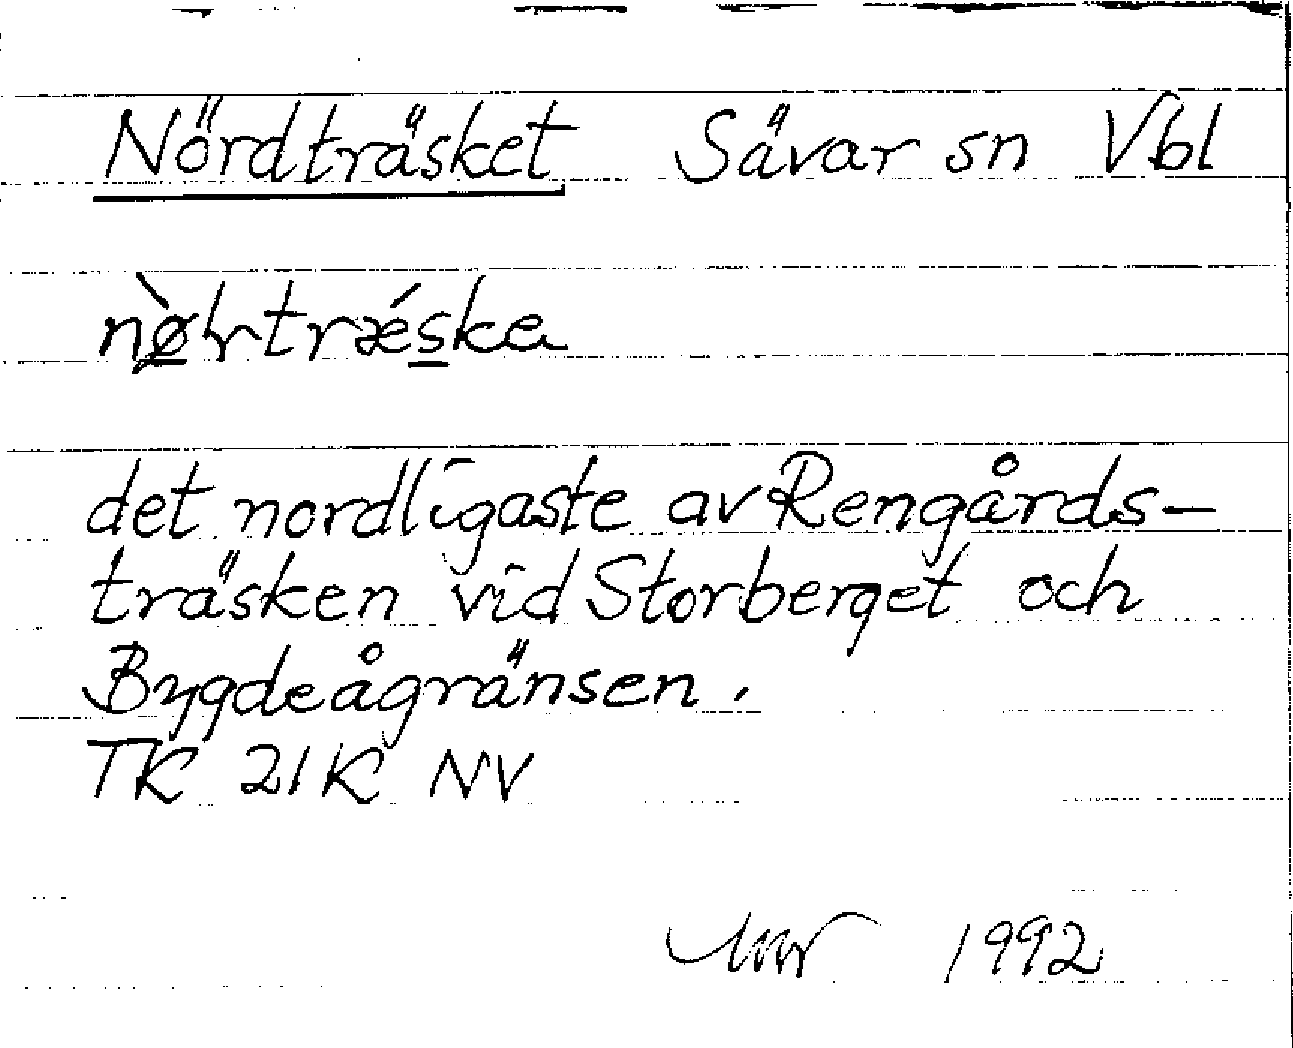 Nördträsket Sävar sn Vbl
det nordligaste av Rengårds-
träsken vid Storberget och
Bygdeågränsen.
TK 21K NV
1992